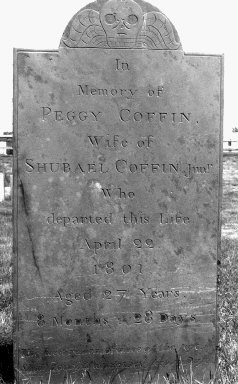 In
Memory of
PEGGY COFFIN,
Wife of
SHUBAEL COFFIN, Junr
Who
departed this life
April 22
1801
Aged 27 Years,
8 Months & 28 Days